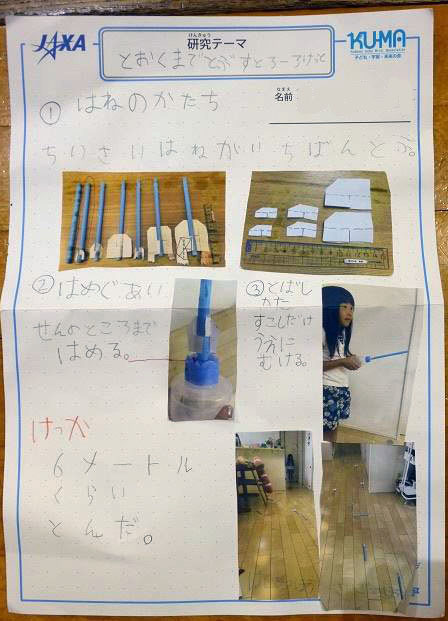 JAXA
けんきゅう
研究テーマ
KUMA
子ども・宇宙・未来の会
とおくまでとぶすとろーろけっと
なまえ
名前
① はねのかたち
ちいさいはねがいちばんとぶ。
② はめぐあい
せんのところまで
はめる。
③ とばし
かた
すこしだけ
うえに
むける。
けっか
6メートル
くらい
とんだ。